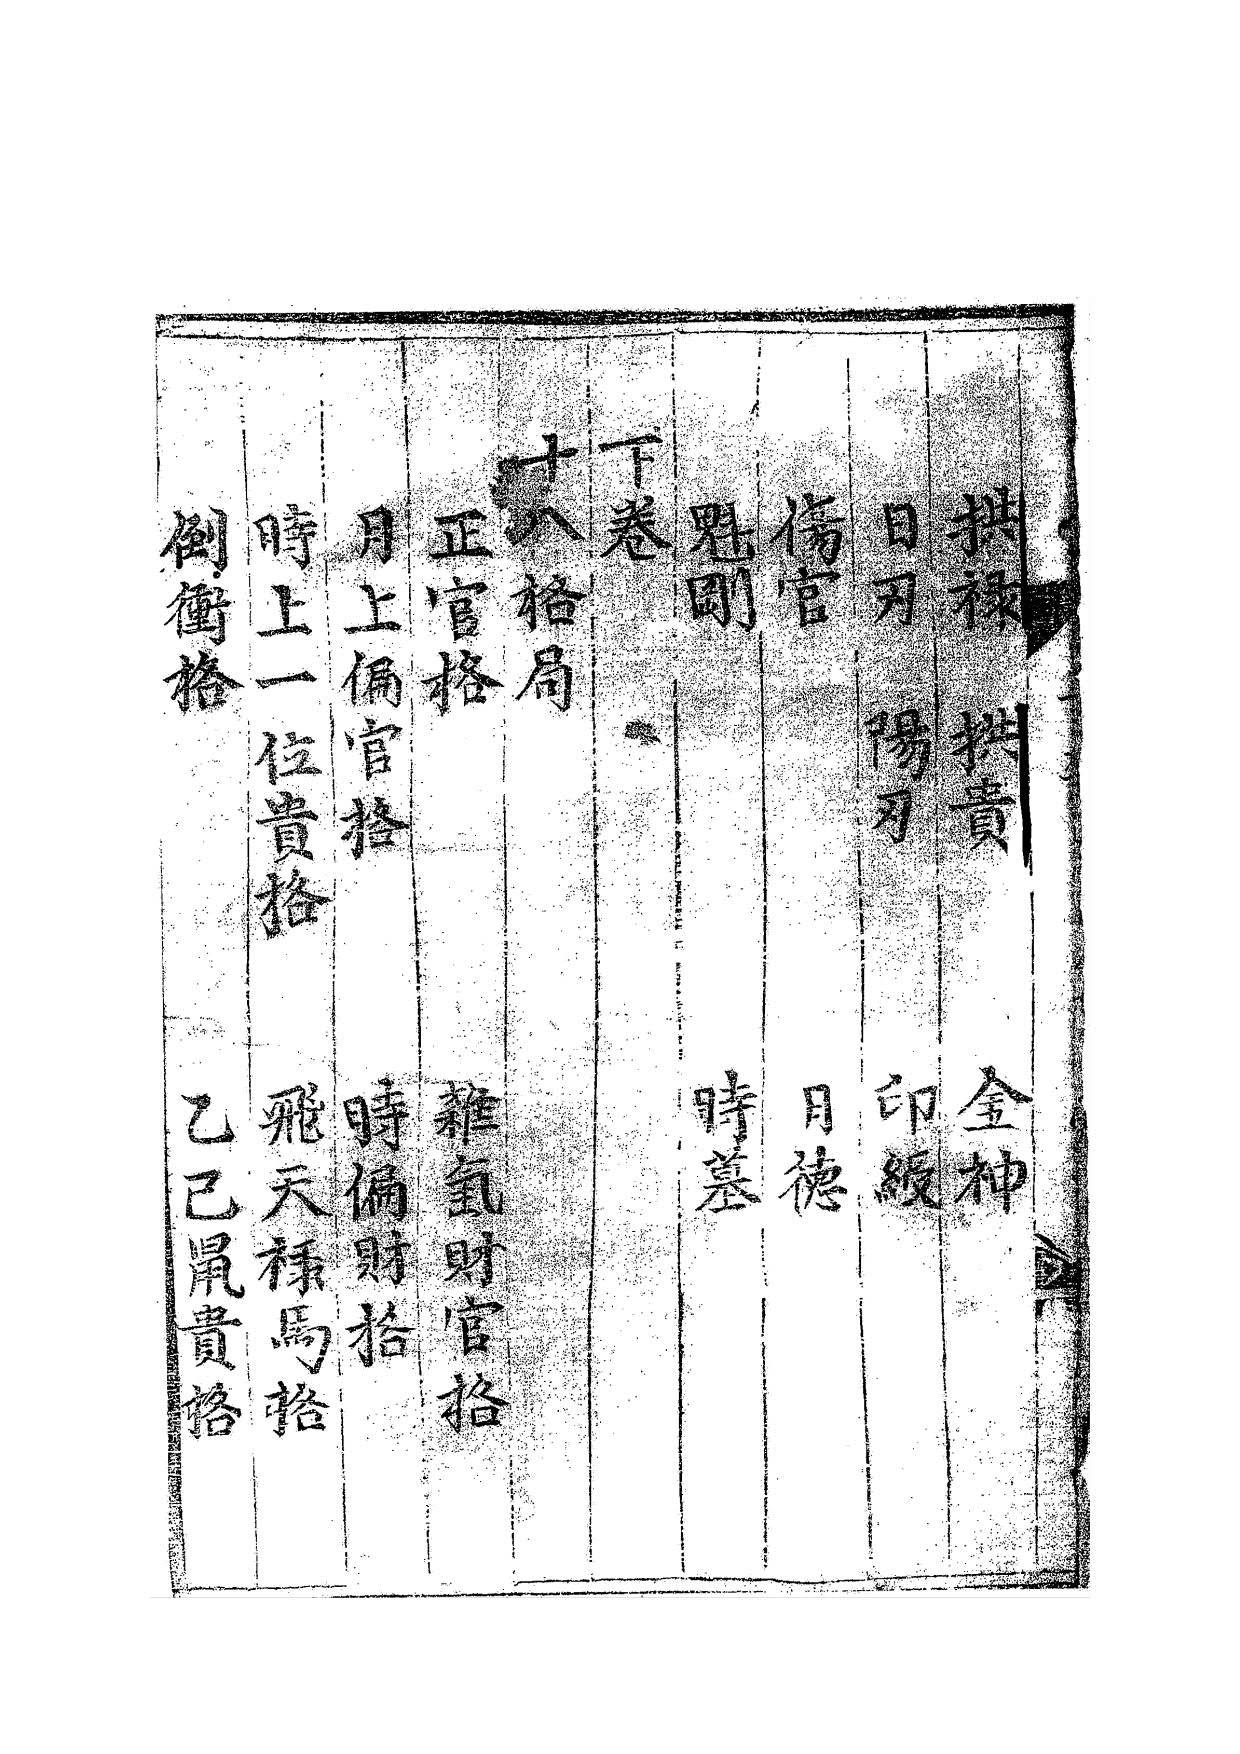 拱禄　拱貴　金神
日刃　陽刃　印綬
傷官　日德
魁罡　時墓
下卷
十八格局
正官格　雜氣財官格
月上偏官格　時偏財格
時上一位貴格　飛天祿馬格
倒衝格　乙己鼠貴格